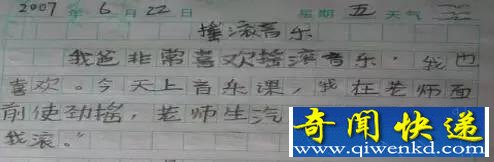 2007年6月22日 星期五 天气
摇滚音乐
我爸非常喜欢摇滚音乐，我也
喜欢。今天上音乐课，我在老师面
前使劲摇，老师生汽
我滚。"
奇闻快递
www.qiwenkd.com